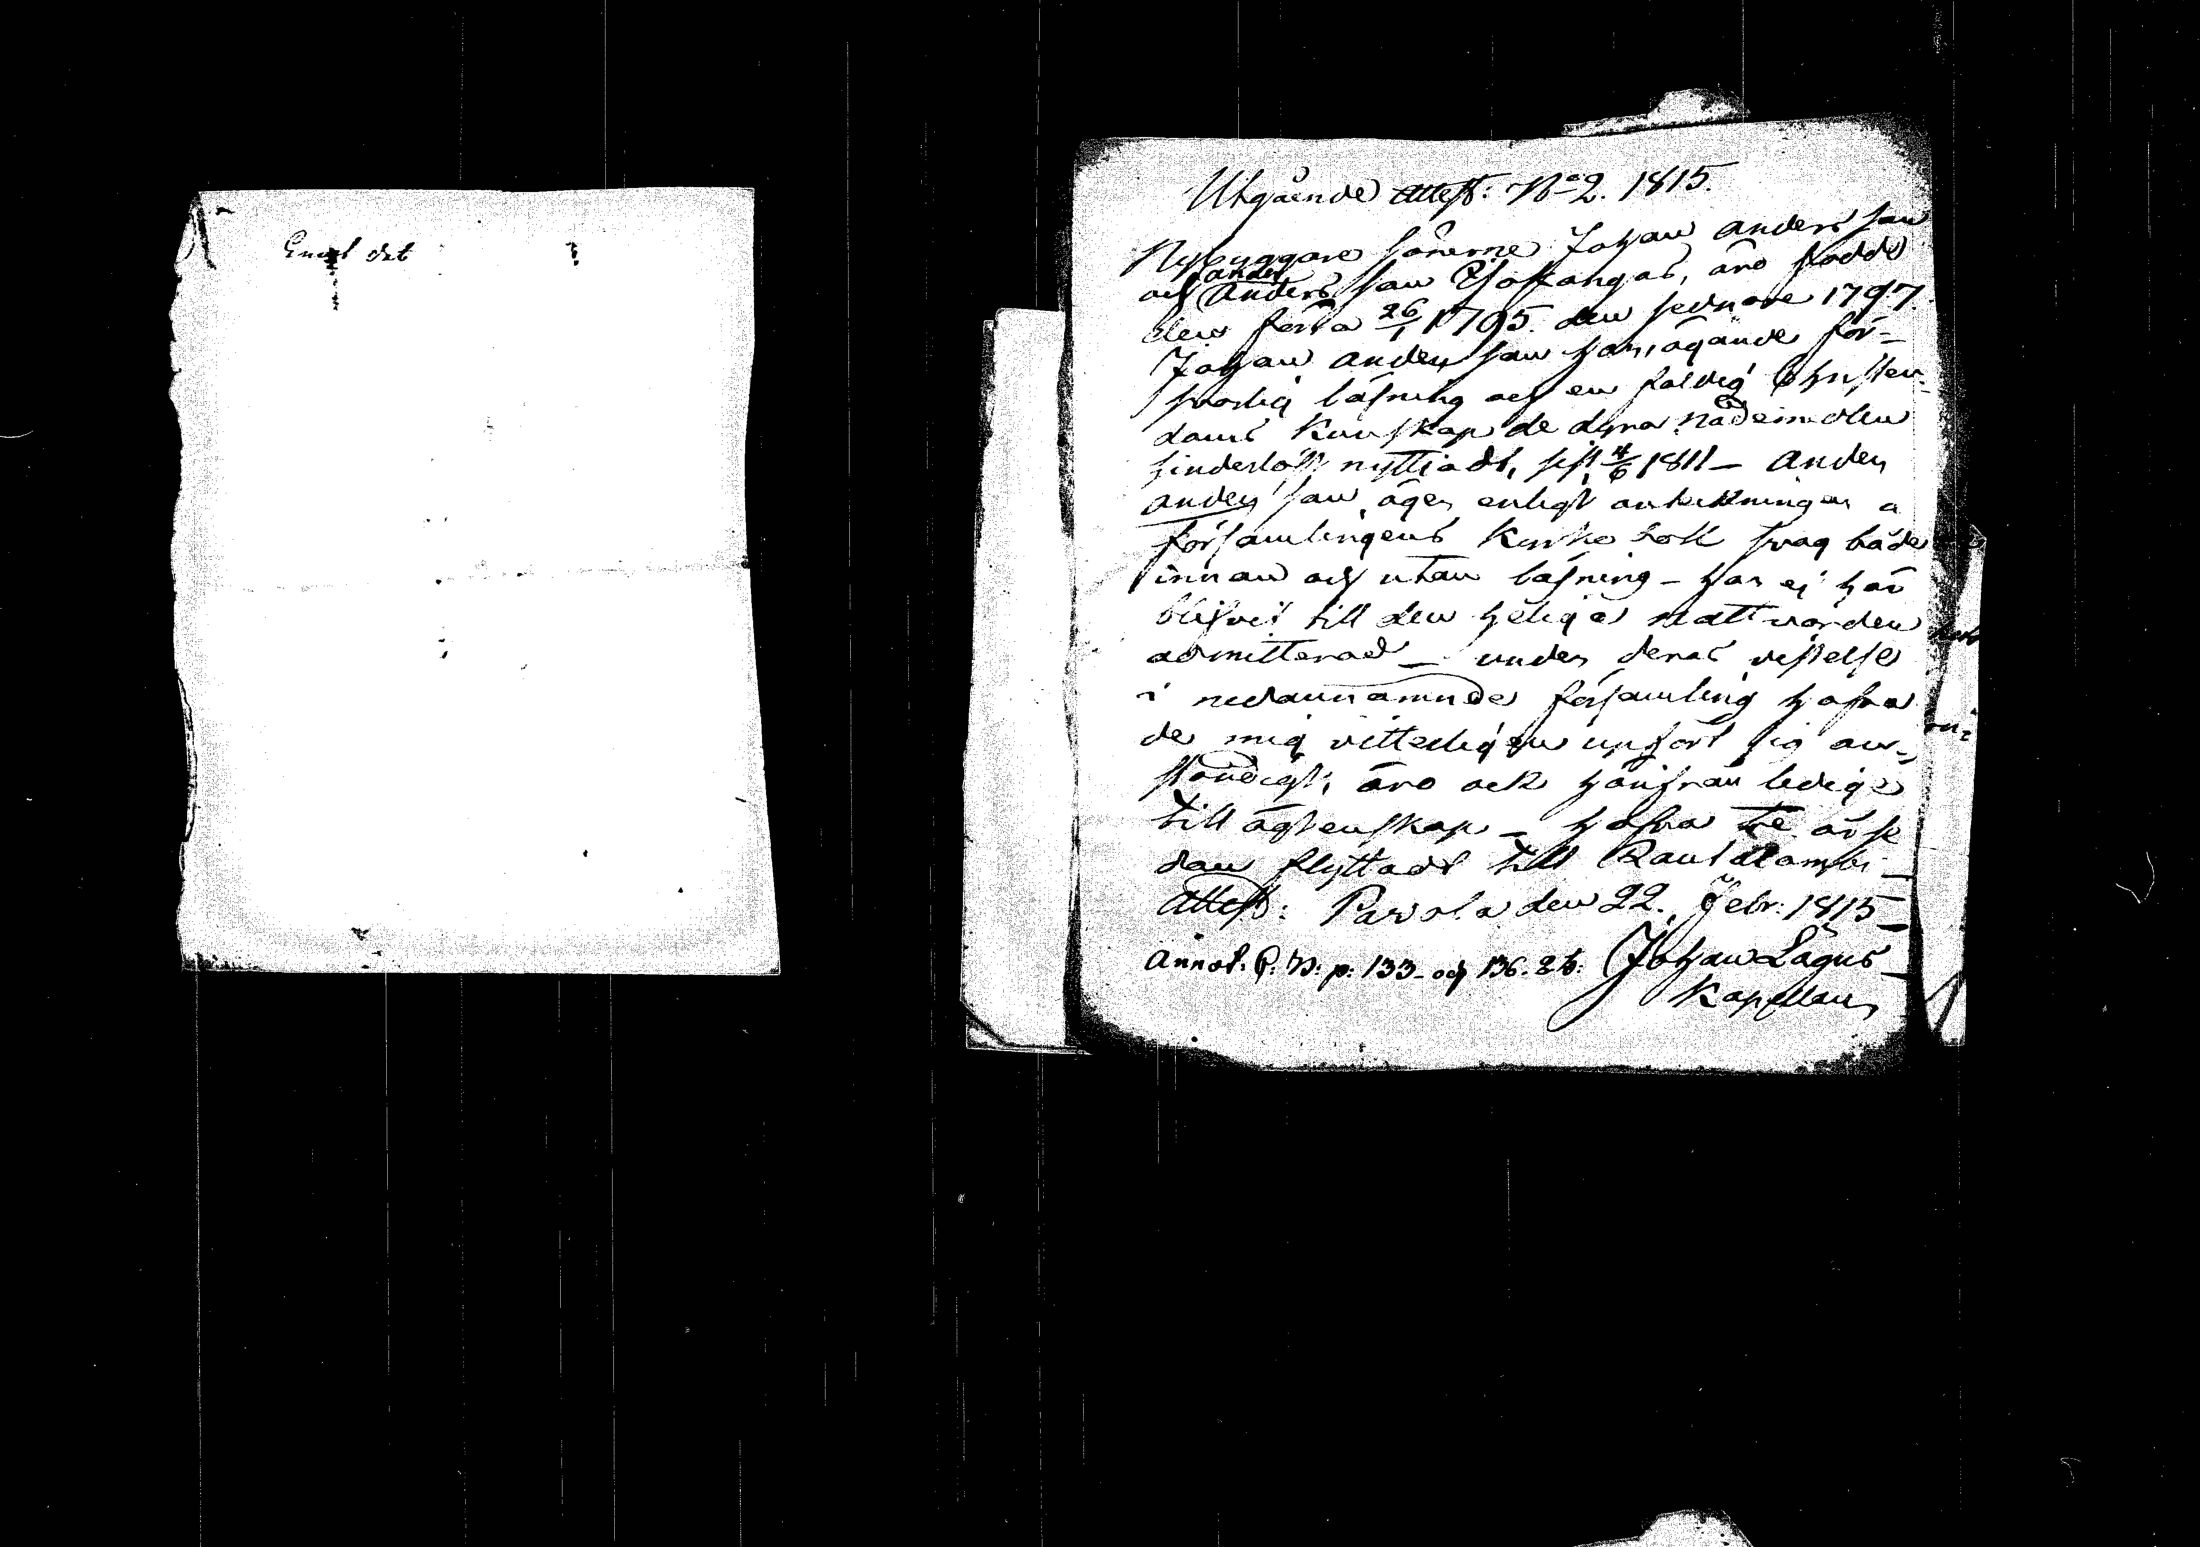 Utgående Attest: No 2. 1815.
Nybyggare sönerne Johan Andersson
och Anders Andersson Hoffangas, äro födde
den förra 26/1 1795. den sednare 1797.
Johan Andersson har, ägande för-
svarlig läsning och en faldig Christen-
doms Kunskap de dyra nådemedlen
hinderlöst nyttjadt, sist 4/6 1811 – Anders
Andersson äger enligt anteckningen a
församlingens Kyrko bok svag både
innan och utan läsning – har ej här
blifvit till den heliga nattvarden
admitterad – under deras vistelse
i nedannämnde församling hafva
de mig vitterligen upfört sig an-
ständigt, äro ock härifrån ledige
till ägtenskap – hafva re'n
dan flyttadt till Rautalampi –
Attest: Pavola den 22. Febr: 1815 –
Annot: p: 133 – och 136. Johan Lagus
Kapellan
det